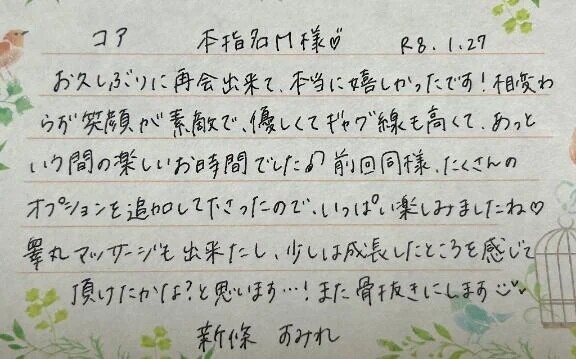 コア 本指名M様♡ R8.1.27
お久しぶりに再会出来て、本当に嬉しかったです！相変わ
らず笑顔が素敵で、優しくてギャグ線も高くて、あっと
いう間の楽しいお時間でした♪前回同様、たくさんの
オプションを追加して下さったので、いっぱい楽しみましたね♡
睾丸マッサージも出来たし、少しは成長したところを感じて
頂けたかな？と思います…！また骨抜きにします
新條 すみれ